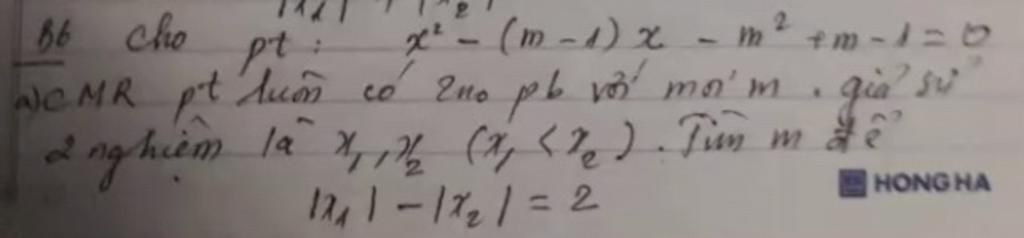 |x₁| |x₂|
B6 Cho pt: x² - (m-1)x - m² + m - 1 = 0
a) CMR pt luôn có 2 no pb với mọi m. giả sử
2 nghiệm là x₁, x₂ (x₁ < x₂). Tìm m để
|x₁| - |x₂| = 2
HONG HA